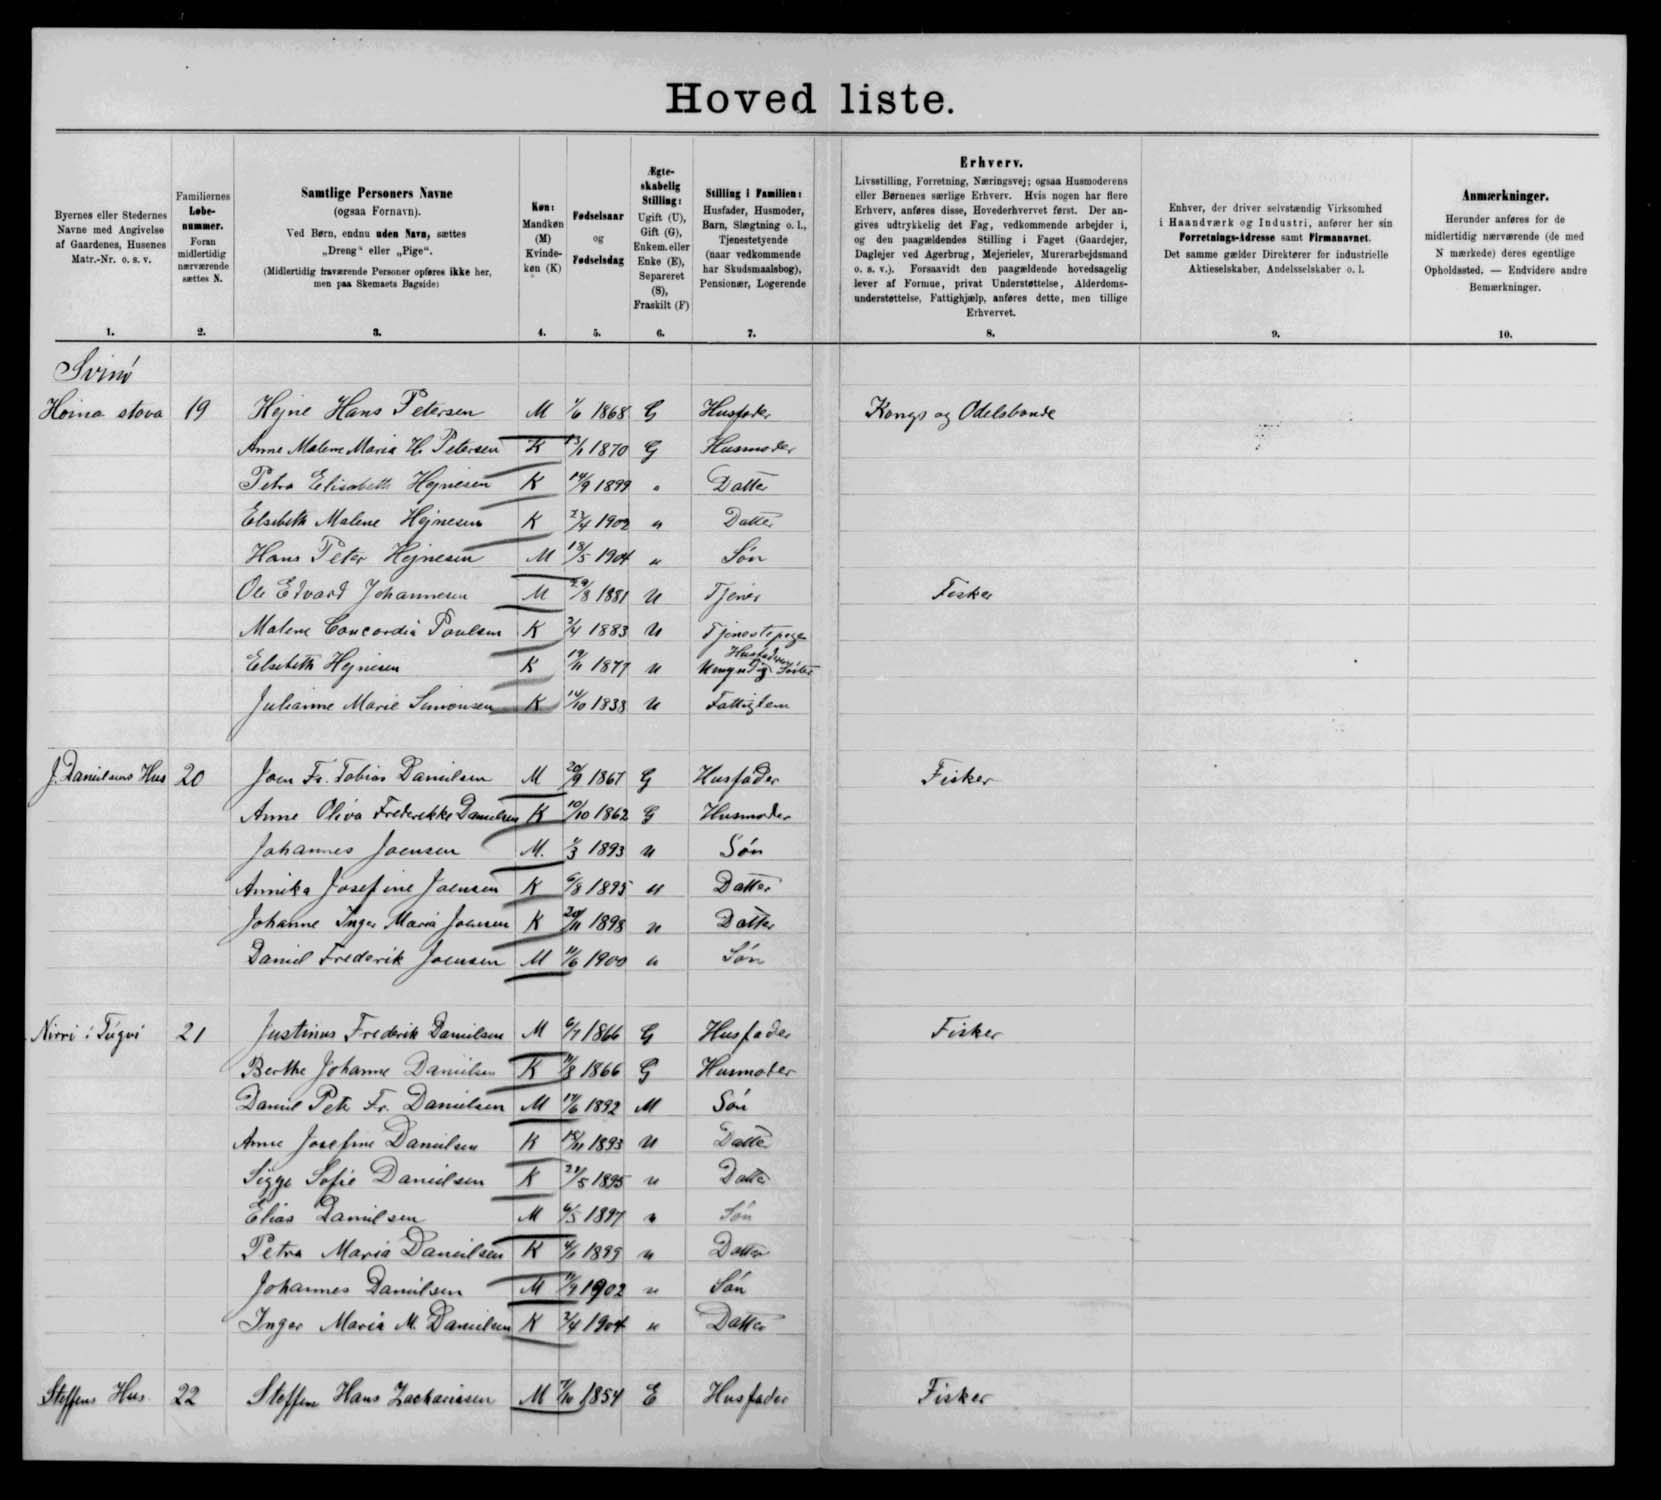 Hoved liste.
Byernes eller Stedernes Navne med Angivelse af Gaardenes, Husenes Matr.-Nr. o. s. v.
Familiernes Løbenummer. Foran midlertidig nærværende sættes N.
Samtlige Personers Navne (ogsaa Fornavn). Ved Børn, endnu uden Navn, sættes „Dreng“ eller „Pige“. (Midlertidig fraværende Personer opføres ikke her, men paa Skemaets Bagside)
Køn: Mandkøn (M) Kvindekøn (K)
Fødselsaar og Fødselsdag
Ægteskabelig Stilling: Ugift (U), Gift (G), Enkem. eller Enke (E), Separeret (S), Fraskilt (F)
Stilling i Familien: Husfader, Husmoder, Barn, Slægtning o. l., Tjenestetyende (naar vedkommende har Skudsmaalsbog), Pensionær, Logerende
Erhverv. Livsstilling, Forretning, Næringsvej; ogsaa Husmoderens eller Børnenes særlige Erhverv. Hvis nogen har flere Erhverv, anføres disse, Hovederhvervet først. Der angives udtrykkelig det Fag, vedkommende arbejder i, og den paagældendes Stilling i Faget (Gaardejer, Daglejer ved Agerbrug, Mejerielev, Murerarbejdsmand o. s. v.). Forsaavidt den paagældende hovedsagelig lever af Formue, privat Understøttelse, Alderdomsunderstøttelse, Fattighjælp, anføres dette, men tillige Erhvervet.
Enhver, der driver selvstændig Virksomhed i Haandværk og Industri, anfører her sin Forretnings-Adresse samt Firmanavnet. Det samme gælder Direktører for industrielle Aktieselskaber, Andelsselskaber o. l.
Anmærkninger. Herunder anføres for de midlertidig nærværende (de med N mærkede) deres egentlige Opholdssted. — Endvidere andre Bemærkninger.
1. 2. 3. 4. 5. 6. 7. 8. 9. 10.
Svinø
Heina stova 19 Hejne Hans Petersen M 1/6 1868 G Husfader Kongs og Odelsbonde
Anne Malene Maria H. Petersen K 13/1 1870 G Husmoder
Petra Elisabeth Hejnesen K 14/9 1899 " Datter
Elsebeth Malene Hejnesen K 1902 u Datter
Hans Peter Hejnesen M 18/5 1904 u Søn
Ole Edvard Johannesen M 29/8 1881 U Tjener Fisker
Malene Concordia Poulsen K 1883 U Tjenestepige
Elsebeth Hejnesen K 19/11 1877 U Umyndig Husfaderens Søster
Julianne Marie Simonsen K 14/10 1838 U Fattiglem
J. Danielsens Hus 20 Joen Fr. Tobias Danielsen M 20/9 1867 G Husfader Fisker
Anne Oliva Frederikke Danielsen K 10/10 1862 G Husmoder
Johannes Joensen M. 1/3 1893 U Søn
Annika Josefine Joensen K 6/8 1895 U Datter
Johanne Inger Maria Joensen K 20/11 1898 u Datter
Daniel Frederik Joensen M 11/6 1900 u Søn
Nirri i Túgvi 21 Justinus Frederik Danielsen M 6/7 1866 G Husfader Fisker
Berthe Johanne Danielsen K 11/8 1866 G Husmoder
Daniel Petr Fr. Danielsen M 17/6 1892 M Søn
Anne Josefine Danielsen K 18/11 1893 U Datter
Sigge Sofie Danielsen K 21/5 1895 u Datter
Elias Danielsen M 6/5 1897 u Søn
Petra Maria Danielsen K 1899 u Datter
Johannes Danielsen M 11/9 1902 u Søn
Inger Maria M. Danielsen K 2/4 1904 u Datter
Steffens Hus 22 Steffen Hans Zachariasen M 1854 E Husfader Fisker